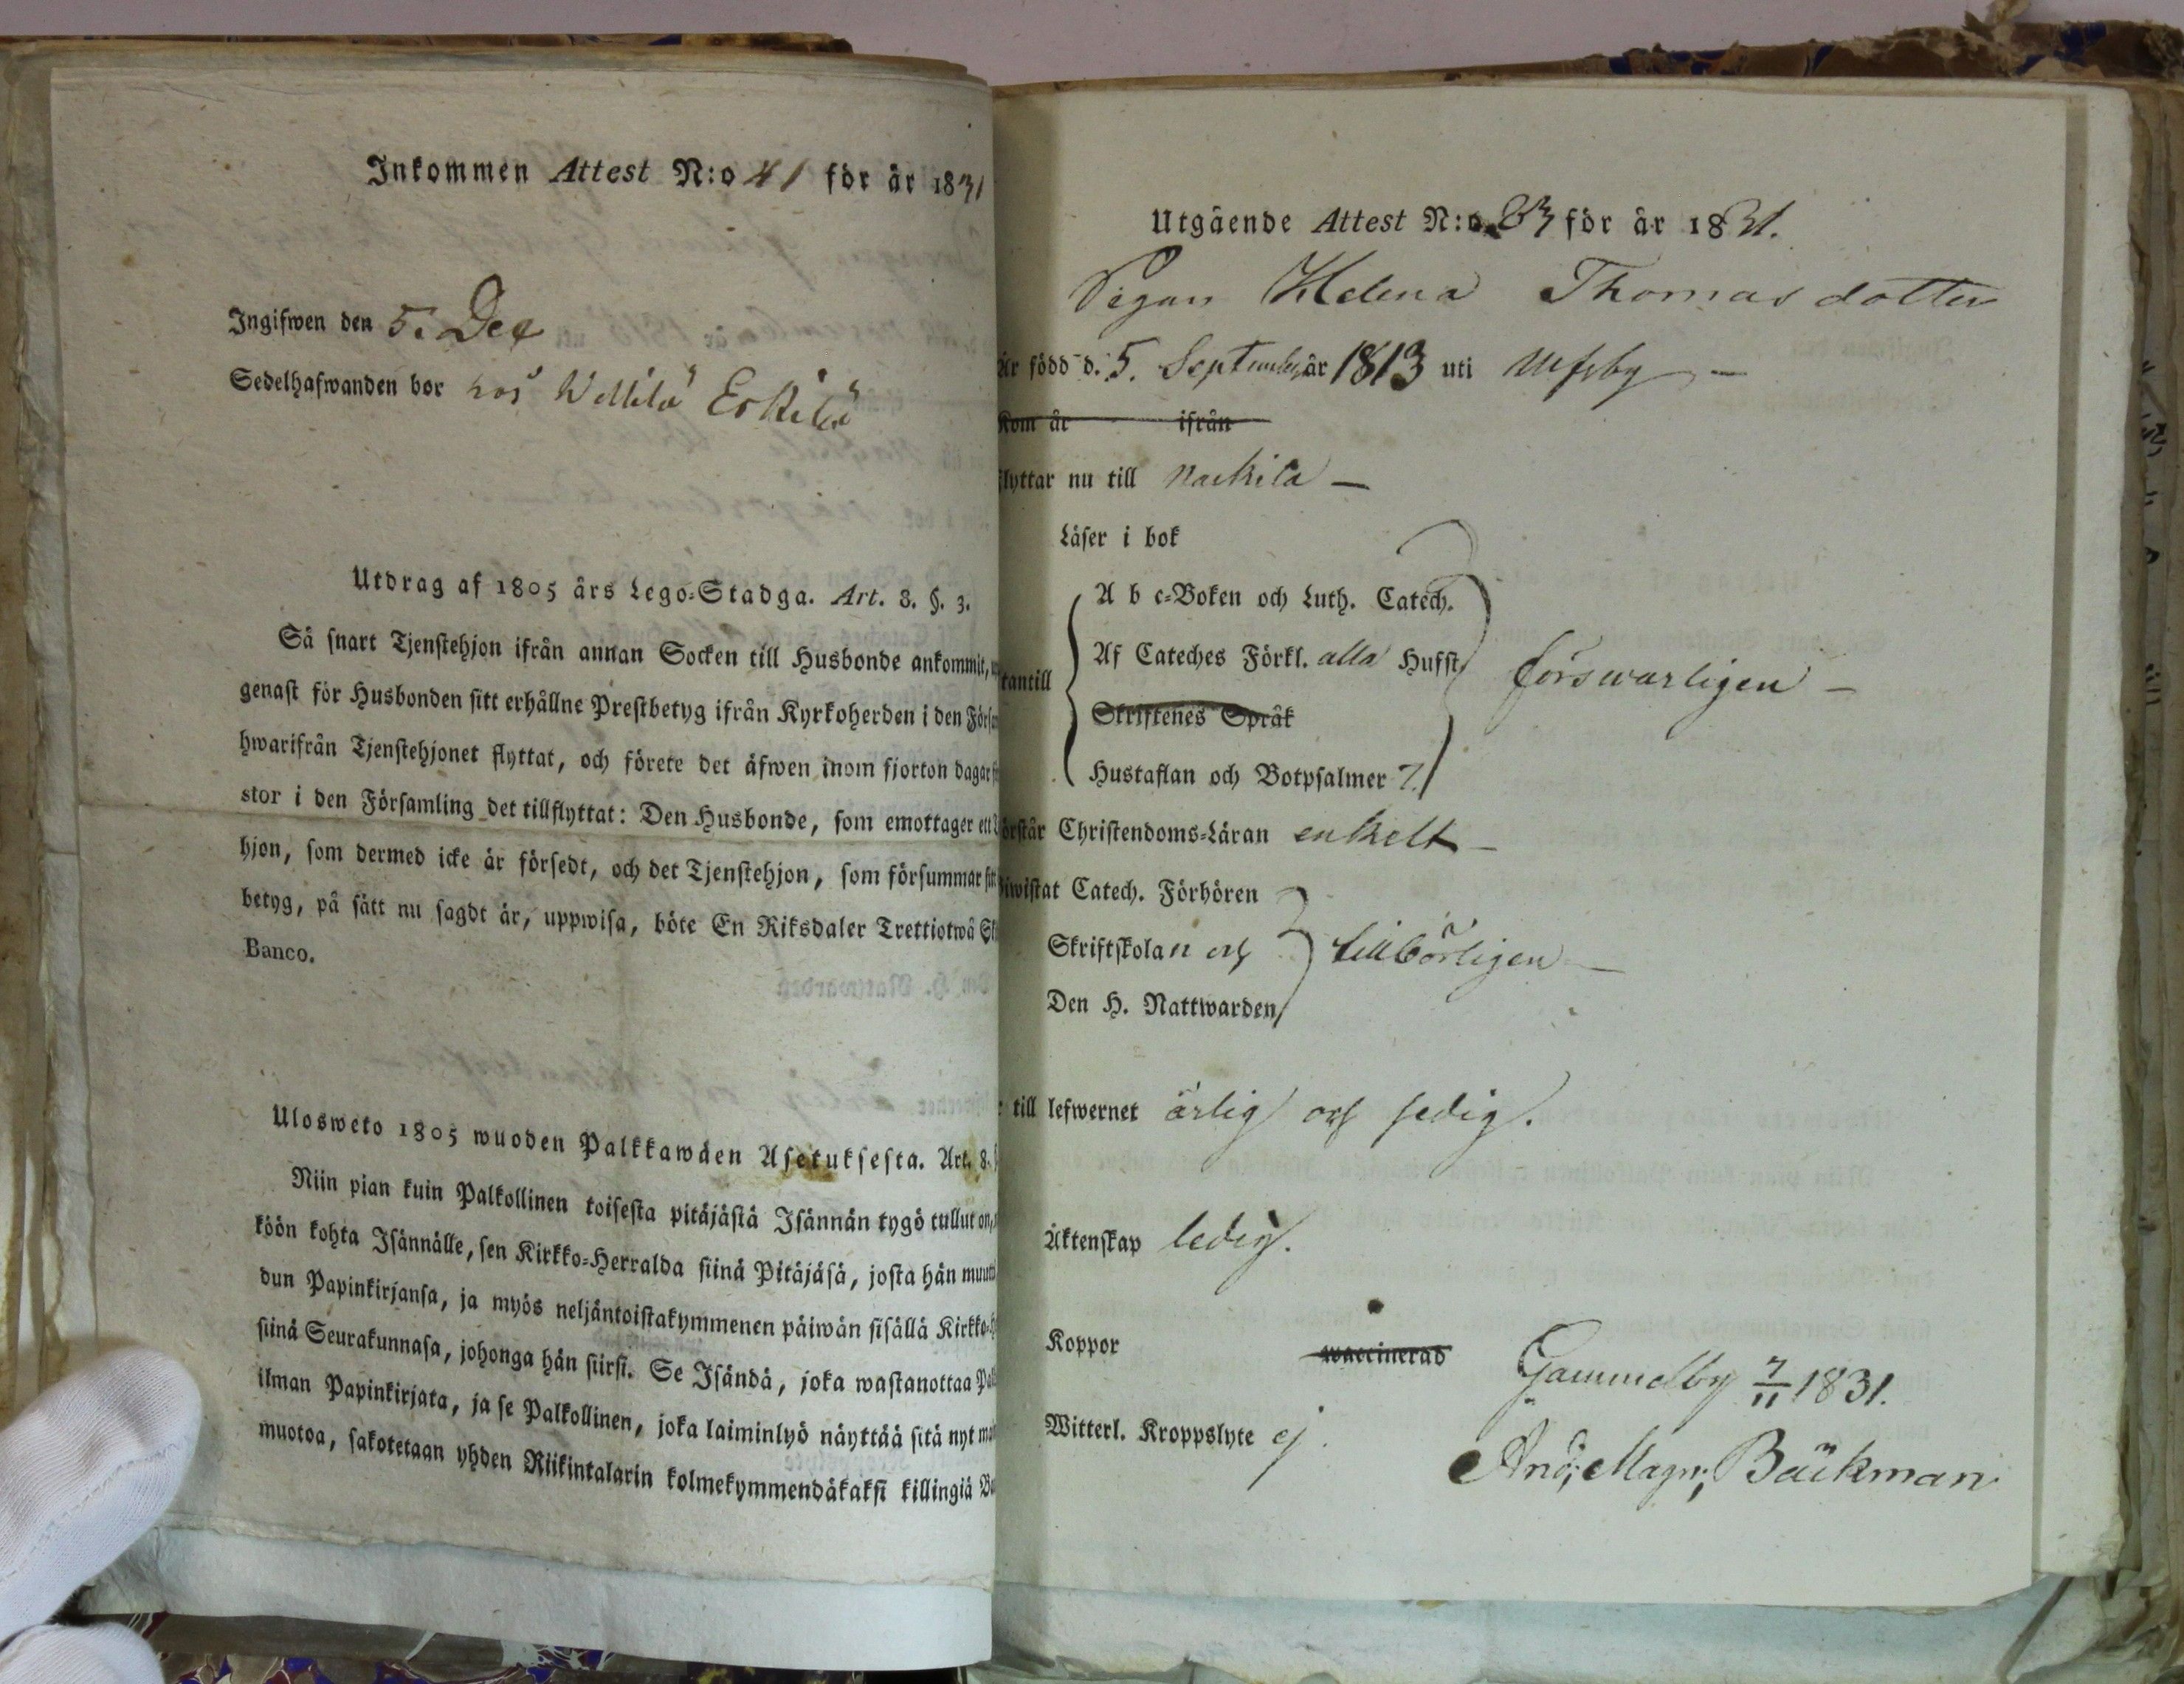 Inkommen Attest N:o 41 för år 1831
Ingifwen den 5. Dec
Sedelhafwanden bor hos
Utdrag af 1805 års Lego-Stadga. Art. 8. §. 3.
Så snart Tjenstehjon ifrån annan Socken till Husbonde ankommit,
genast för Husbonden sitt erhållne Prestbetyg ifrån Kyrkoherden i den
hwarifrån Tjenstehjonet flyttat, och förete det äfwen inom fjorton dagar
stor i den Församling det tillflyttat: Den Husbonde, som emottager ett
hjon, som dermed icke är försedt, och det Tjenstehjon, som försummar
betyg, på sätt nu sagdt är, uppwisa, böte En Riksdaler Trettiotwå
Banco.
Ulosweto 1805 wuoden Palkkawäen Asetuksesta. Art. 8.
Niin pian kuin Palkollinen toisesta pitäjästä Isännän tygö tullut on,
köön kohta Isännälle, sen Kirkko-Herralda siinä Pitäjäsä, josta hän
dun Papinkirjansa, ja myös neljäntoistakymmenen päiwän sisällä
siinä Seurakunnasa, johonga hän siirsi. Se Isändä, joka wastanottaa
ilman Papinkirjata, ja se Palkollinen, joka laiminlyö näyttää sitä nyt
muotoa, sakotetaan yhden Riikintalarin kolmekymmendäkaksi killingiä
Utgående Attest N:o 83 för år 1831.
Pigan Helena Thomas dotter
Är född d. 5. September år 1813 uti Ulfsby -
Kom år ifrån
flyttar nu till Nackila -
Läser i bok
A b c-Boken och Luth. Catech.
Af Cateches Förkl. alla Hufst
tantill försvarligen -
Skriftenes Språk
Hustaflan och Botpsalmer 7.
örstår Christendoms-Läran enkelt -
iwistat Catech. Förhören
Skriftskolan och tillbörligen -
Den H. Nattwarden
till lefwernet ärlig och sedig.
Äktenskap ledig.
Koppor waccinerad
Gammelby 7/11 1831.
Witterl. Kroppslyte ej.
And: Magn: Bäckman